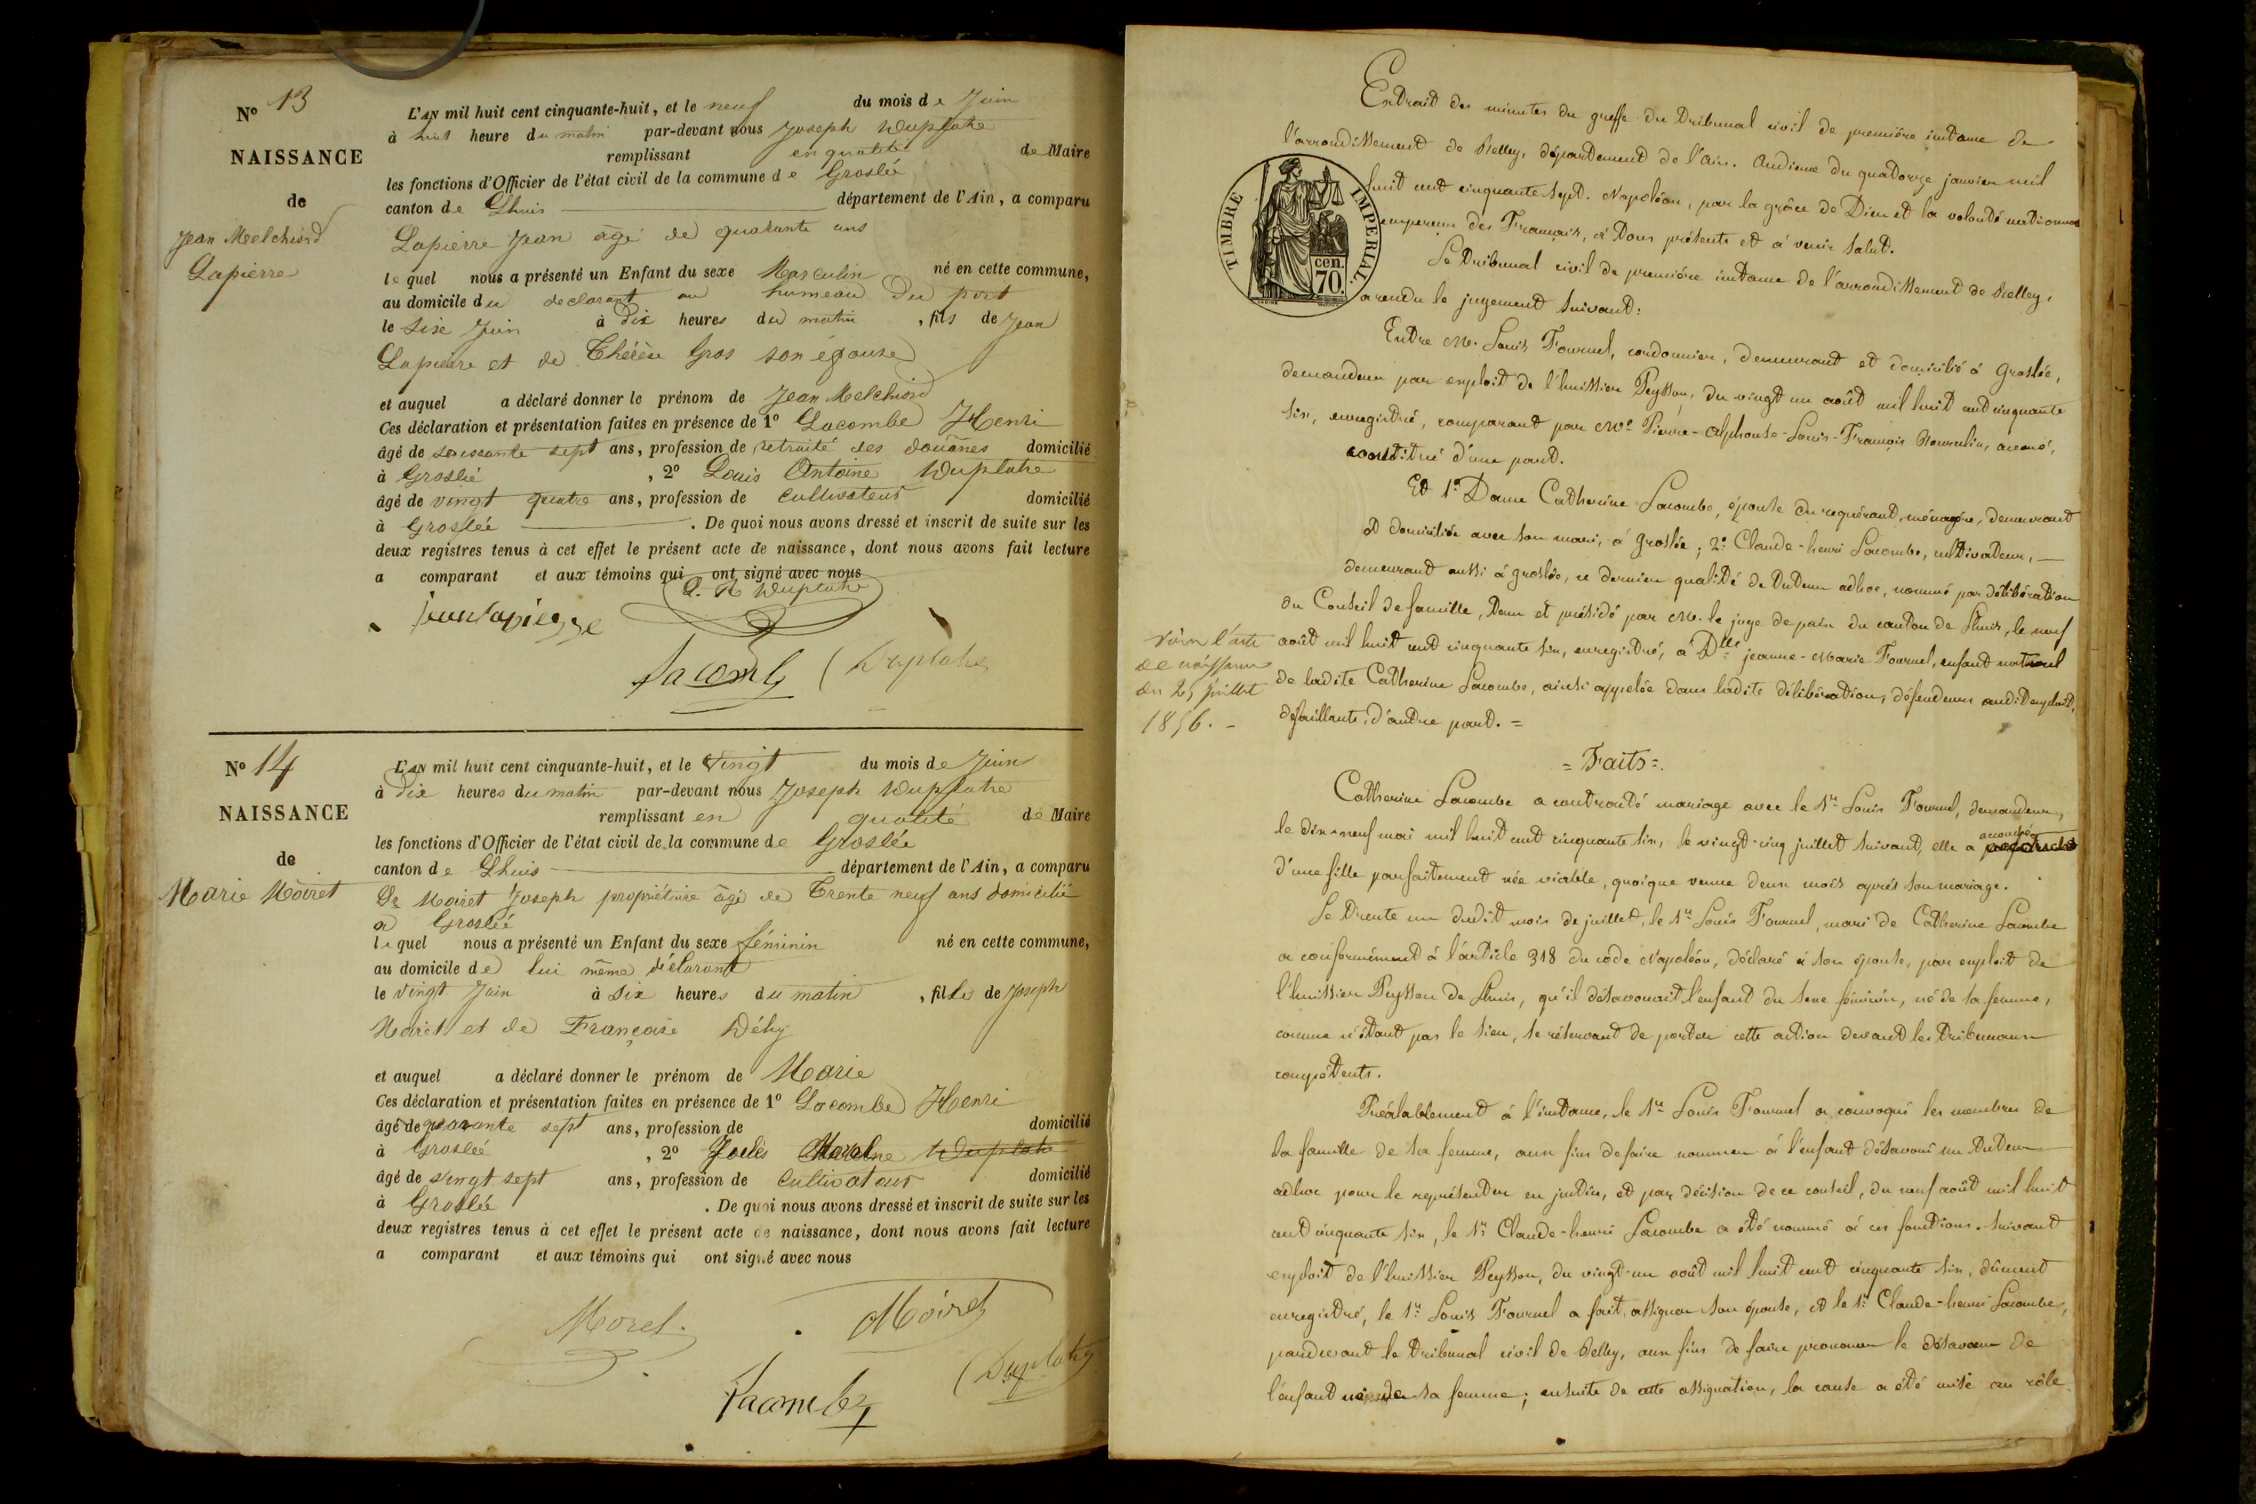 N° 13
NAISSANCE
de
Jean Melchiord
Lapierre
L'AN mil huit cent cinquante-huit, et le neuf du mois de Juin
à huit heure du matin par-devant nous Joseph Duplatre
remplissant en qualité de Maire
les fonctions d'Officier de l'état civil de la commune de Groslée
canton de Lhuis département de l'Ain, a comparu
Lapierre Jean âgé de quarante ans
lequel nous a présenté un Enfant du sexe Masculin né en cette commune,
au domicile du declarant au hameau du port
le Sixe Juin à Dix heures du matin, fils de Jean
Lapierre et de Thérèse Gros son épouse
et auquel a déclaré donner le prénom de Jean Melchiord
Ces déclaration et présentation faites en présence de 1° Lacombe Henri
âgé de soixante sept ans, profession de retraité des douanes domicilié
à Groslée, 2° Louis Antoine Duplatre
âgé de vingt quatre ans, profession de Cultivateur domicilié
à Groslée. De quoi nous avons dressé et inscrit de suite sur les
deux registres tenus à cet effet le présent acte de naissance, dont nous avons fait lecture
a comparant et aux témoins qui ont signé avec nous
Duplatre
jean lapierre
Lacombe Duplatre
N° 14
NAISSANCE
de
Marie Moiret
L'AN mil huit cent cinquante-huit, et le Vingt du mois de Juin
à Dix heures du matin par-devant nous Joseph Duplatre
remplissant en qualité de Maire
les fonctions d'Officier de l'état civil de la commune de Groslée
canton de Lhuis département de l'Ain, a comparu
Moiret Joseph propriétaire âgé de Trente neuf ans domicilié
a Groslée
lequel nous a présenté un Enfant du sexe féminin né en cette commune,
au domicile de lui même déclarant
le Vingt Juin à Six heures du matin, fille de Joseph
Moiret et de Françoise Déhy
et auquel a déclaré donner le prénom de Marie
Ces déclaration et présentation faites en présence de 1° Lacombe Henri
âgé de quarante sept ans, profession de domicilié
à Groslée, 2° Morel Duplatre
âgé de vingt sept ans, profession de Cultivateur domicilié
à Groslée. De quoi nous avons dressé et inscrit de suite sur les
deux registres tenus à cet effet le présent acte de naissance, dont nous avons fait lecture
a comparant et aux témoins qui ont signé avec nous
Morel. Moiret
Lacombe Duplatre
Extrait des minutes du greffe du Tribunal civil de première instance de
l'arrondissement de Belley, département de l'Ain. Audience du quatorze janvier mil
huit cent cinquante sept. Napoléon, par la grâce de Dieu et la volonté nationale
empereur des Français, à tous présents et à venir salut.
TIMBRE IMPERIAL.
cen. 70.
Le Tribunal civil de première instance de l'arrondissement de Belley,
a rendu le jugement suivant:
Entre Mr. Louis Fournel, cordonnier, demeurant et domicilié à Groslée,
demandeur par exploit de l'huissier Peysson, du vingt un août mil huit cent cinquante
six, enregistré, comparant par Me Pierre-Alphonse-Louis-François avoué,
constitué d'une part.
Et 1° Dame Catherine Lacombe, épouse du requérant, ménagère, demeurant
et domiciliée avec son mari, à Groslée; 2° Claude-henri Lacombe, cultivateur,
demeurant aussi à Groslée, ce dernier qualité de tuteur adhoc, nommé par délibération
du Conseil de famille, tenu et présidé par Mr. le juge de paix du canton de Lhuis, le neuf
août mil huit cent cinquante six, enregistré, à Dlle jeanne-Marie Fournel, enfant naturel
de ladite Catherine Lacombe, ainsi appelée dans ladite délibération, défendeurs audit exploit,
défaillants, d'autre part. =
Voir l'acte
de naissance
du 25 juillet
1856. -
= Faits =
Catherine Lacombe a contracté mariage avec le Sr Louis Fournel, demandeur,
le dix-neuf mai mil huit cent cinquante six, le vingt-cinq juillet suivant, elle a accouchée
d'une fille parfaitement née viable, quoique venue deux mois après son mariage.
Le trente un dudit mois de juillet, le Sr Louis Fournel, mari de Catherine Lacombe
a conformément à l'article 318 du code Napoléon, déclaré à son épouse, par exploit de
l'huissier Peysson de Lhuis, qu'il désavouait l'enfant du sexe féminin, né de sa femme,
comme n'étant pas le sien, se réservant de porter cette action devant les tribunaux
compétents.
Préalablement à l'instance, le Sr Louis Fournel a convoqué les membres de
la famille de sa femme, aux fins de faire nommer à l'enfant désavoué un tuteur
adhoc pour le représenter en justice, et par décision de ce conseil, du neuf août mil huit
cent cinquante six, le Sr Claude-henri Lacombe a été nommé à ces fonctions. Suivant
exploit de l'huissier Peysson, du vingt-un août mil huit cent cinquante six, dûment
enregistré, le Sr Louis Fournel a fait assigner son épouse, et le Sr Claude-henri Lacombe,
pardevant le tribunal civil de Belley, aux fins de faire prononcer le désaveu de
l'enfant né de sa femme; ensuite de cette assignation, la cause a été mise au rôle